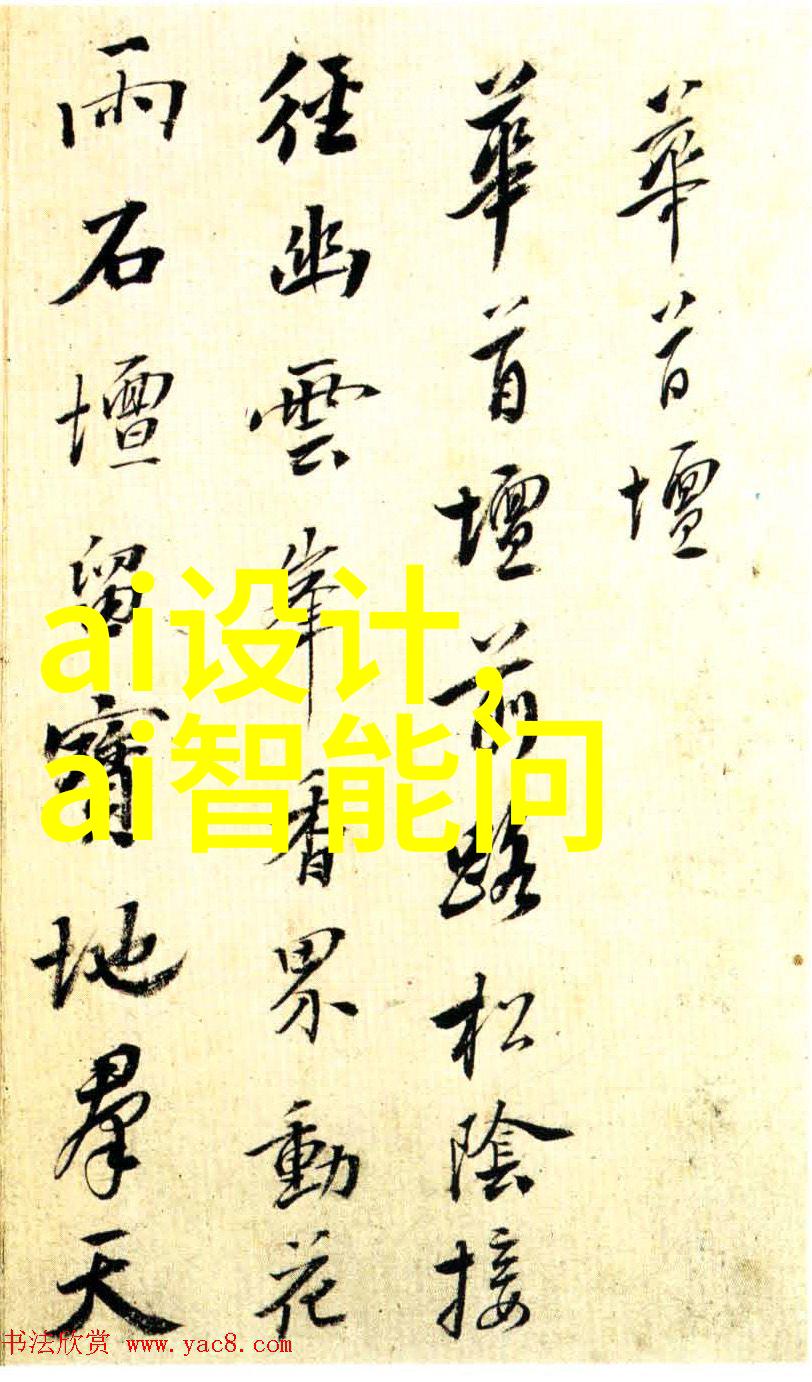 華首壇
華首壇前路松陰接
徑幽雲峯香界動花
雨石壇留寶地羣天
ai设计,
ai智能问
书法欣赏 www.yac8.com